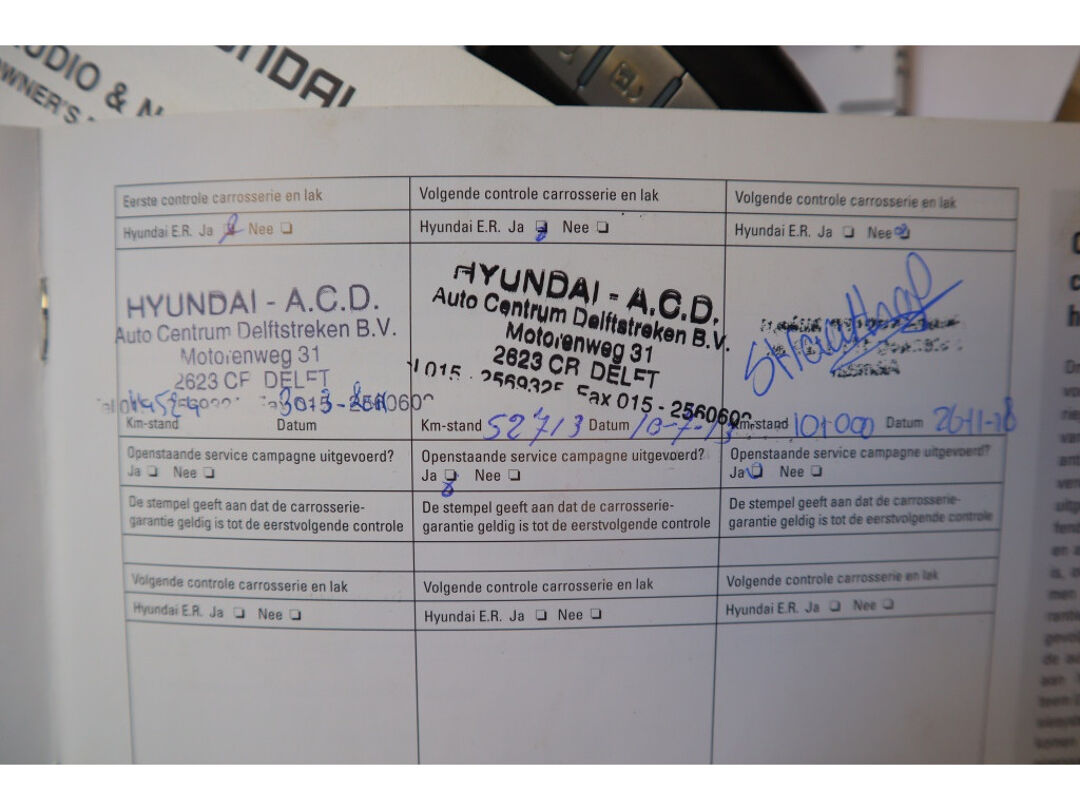 AUDIO &
OWNER'S
HYUNDAI
Eerste controle carrosserie en lak
Hyundai E.R. Ja Nee
HYUNDAI - A.C.D.
Auto Centrum Delftstreken B.V.
Motorenweg 31
2623 CR DELFT
015 - 2560602
Km-stand Datum
Openstaande service campagne uitgevoerd?
Ja Nee
De stempel geeft aan dat de carrosserie-
garantie geldig is tot de eerstvolgende controle
Volgende controle carrosserie en lak
Hyundai E.R. Ja Nee
HYUNDAI - A.C.D.
Auto Centrum Delftstreken B.V.
Motorenweg 31
2623 CR DELFT
015 - 2569325 Fax 015 - 2560602
Km-stand 52713 Datum
Openstaande service campagne uitgevoerd?
Ja Nee
De stempel geeft aan dat de carrosserie-
garantie geldig is tot de eerstvolgende controle
Volgende controle carrosserie en lak
Hyundai E.R. Ja Nee
Km-stand 101000 Datum 26-11-18
Openstaande service campagne uitgevoerd?
Ja Nee
De stempel geeft aan dat de carrosserie-
garantie geldig is tot de eerstvolgende controle
Volgende controle carrosserie en lak
Hyundai E.R. Ja Nee
Volgende controle carrosserie en lak
Hyundai E.R. Ja Nee
Volgende controle carrosserie en lak
Hyundai E.R. Ja Nee